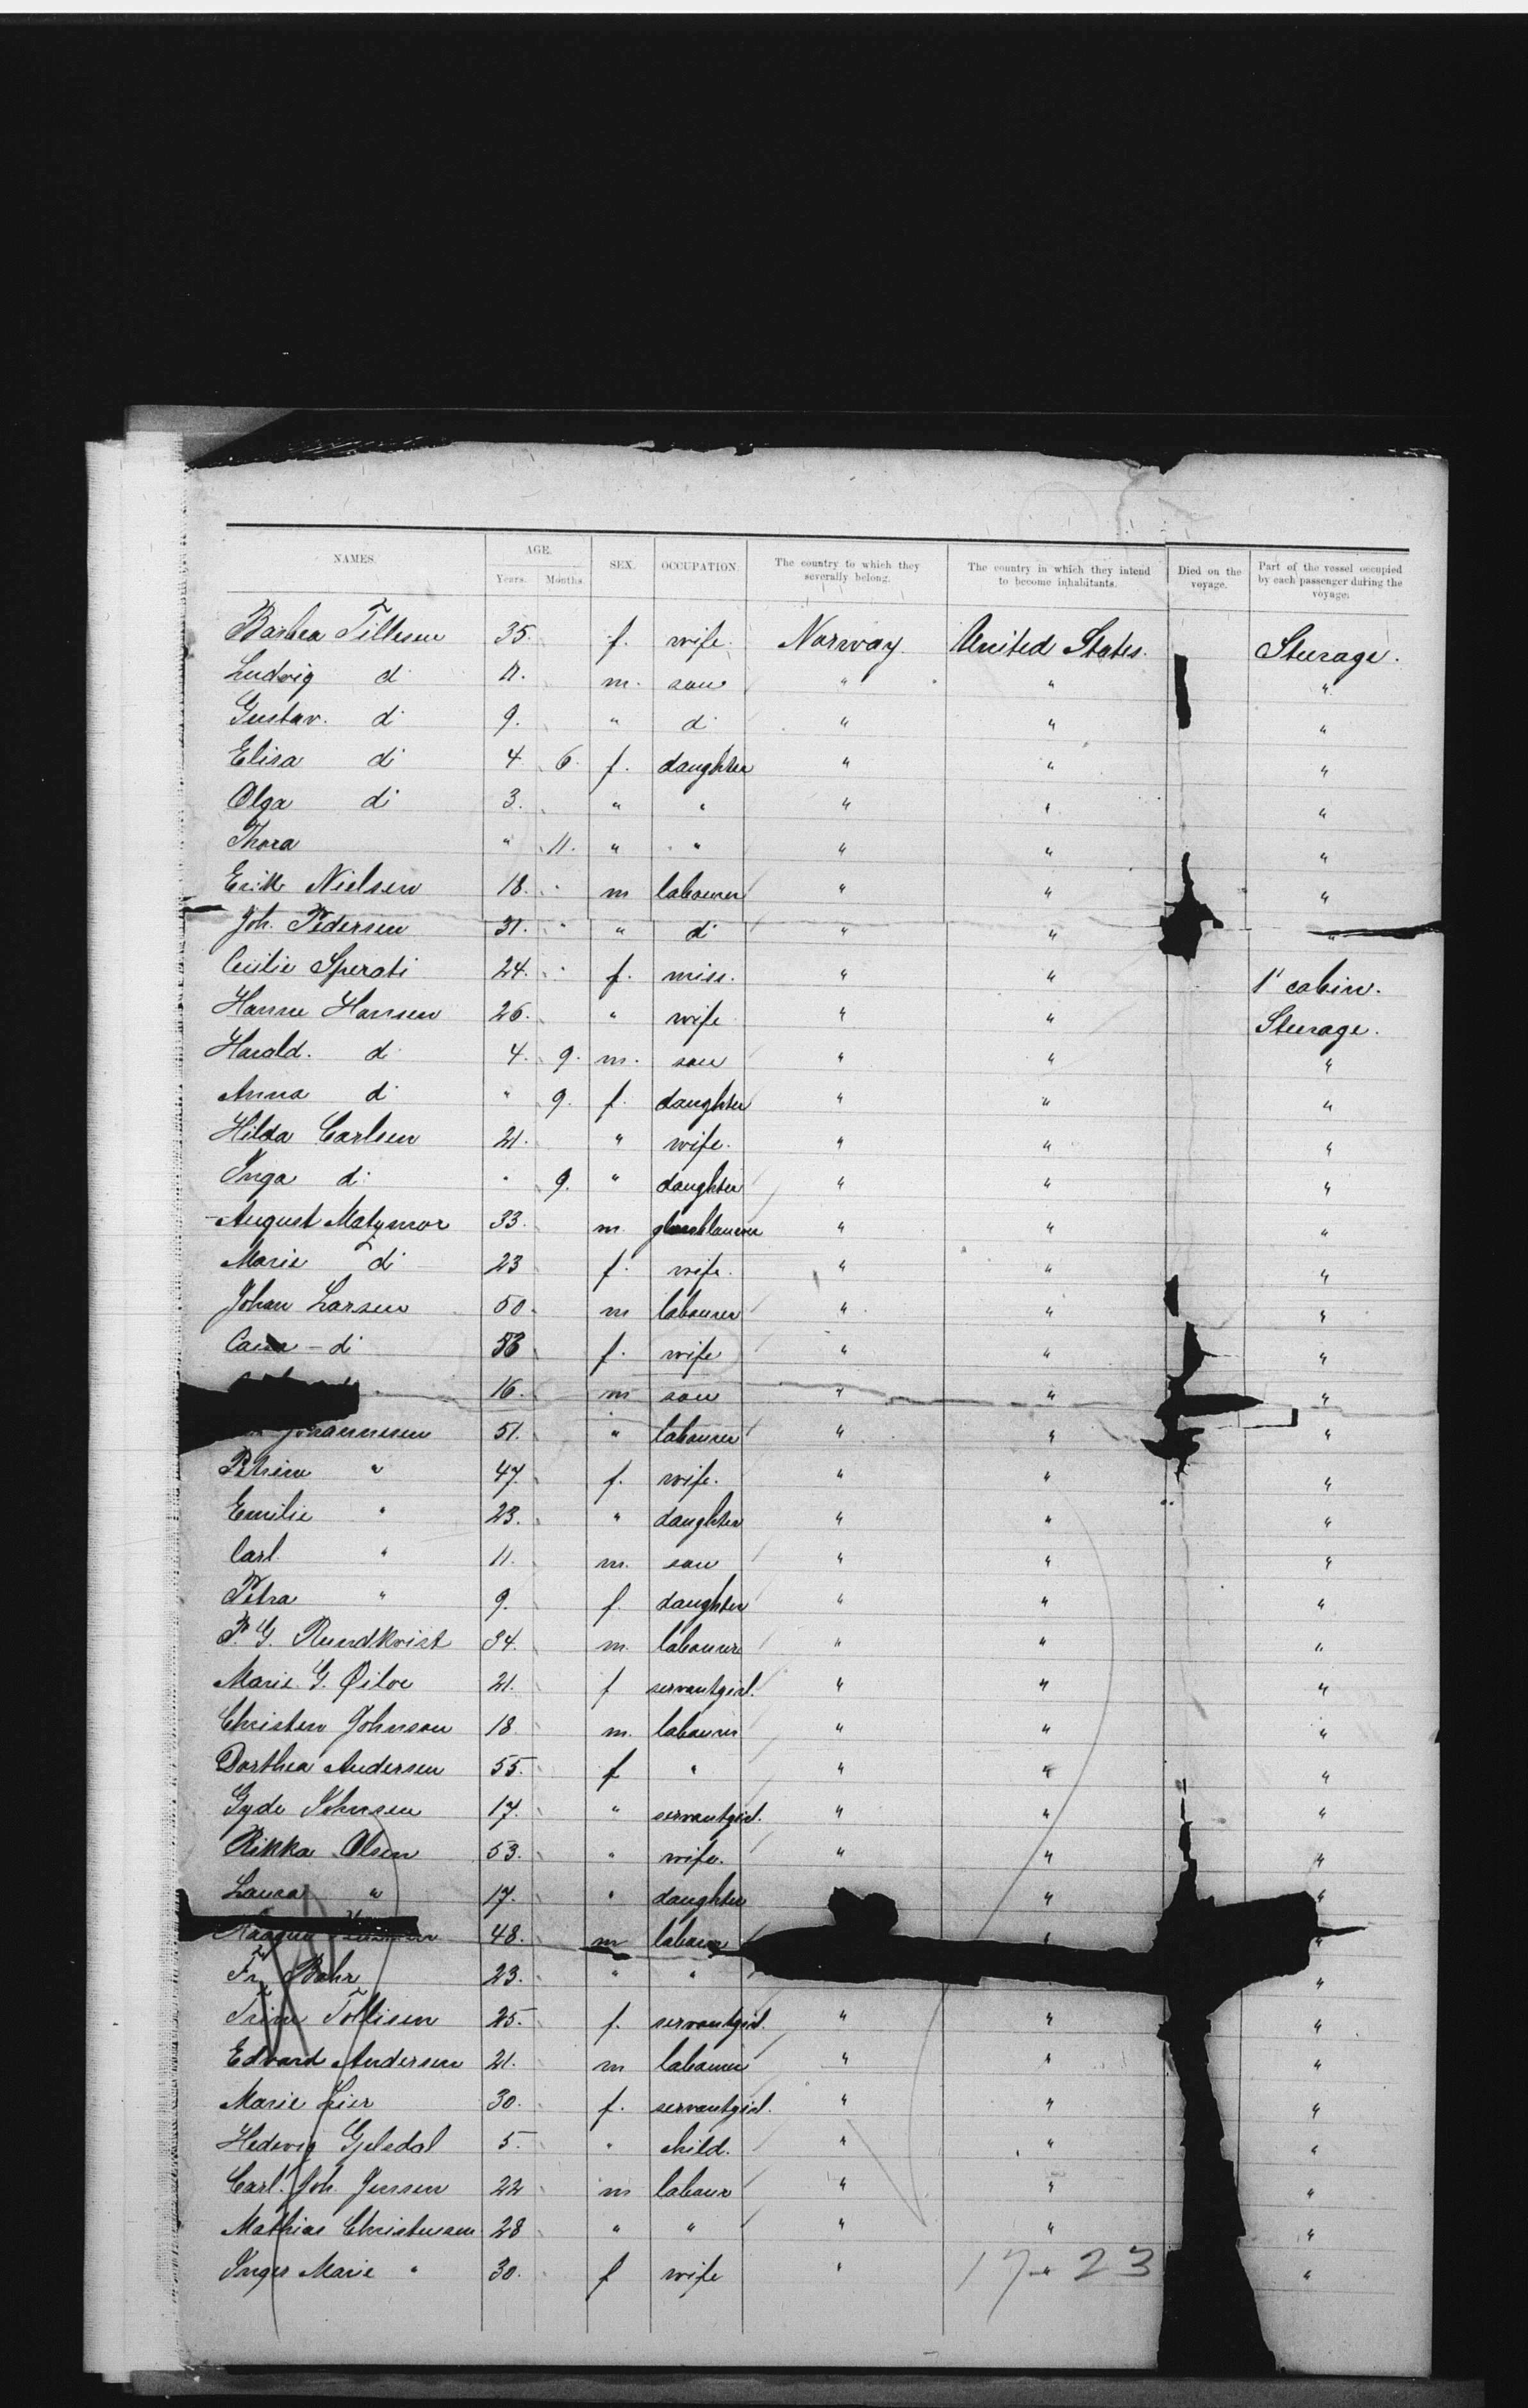 NAMES. AGE. SEX. OCCUPATION. The country to which they severally belong. The country in which they intend to become inhabitants. Died on the voyage. Part of the vessel occupied by each passenger during the voyage.
Years. Months.
Barbea Tillesen 35. f. wife. Norway. United States. Steerage.
Ludvig d 11. m. son " " "
Gustav. d 9. " d " " "
Elisa d 4 6. f. daughter " " "
Olga d 3. " " " " "
Thora " 11. " " " " "
Erik Nielsen 18. m labourer " " "
Joh. Pedersen 31. " d " " "
Cecilie Sperati 24. f. miss. " " 1' cabin.
Hanne Hansen 26. " wife " " Steerage.
Harald. d 4. 9. m. son " " "
Anna d " 9. f. daughter " " "
Hilda Carlsen 21. " wife. " " "
Inga d " 9. " daughter " " "
August Matymor 33. m. " " "
Marie d 23 f. wife. " " "
Johan Larsen 50. m labourer " " "
d f. wife " " "
16. m son " " "
Johannesen 51. " labourer " " "
Petrine " 47. f. wife. " " "
Emilie " 23. " daughter " " "
Carl " 11. m. son " " "
Petra " 9. f. daughter " " "
P. G. Rundkvist 34. m. labourer " " "
Marie G. 21. f servantgirl. " " "
Christen Johnson 18. m. labourer " " "
Dorthea Andersen 55. f " " " "
Gyde Johnsen 17. " servantgirl. " " "
Rikka Olsen 53. " wife. " " "
Laura " 17. " daughter " "
48. m labour " "
Fr. Bohr 23. " " "
Trine Tollisen 25. f. servantgirl. " " "
Edvard Andersen 21. m labourer " " "
Marie Lier 30. f. servantgirl. " " "
Hedevig Gjelsdal 5. " child. " " "
Carl. Joh. Jensen 22 m labour " " "
Mathias Christensen 28 " " " " "
Inger Marie " 30. f wife " " "
17 - 23